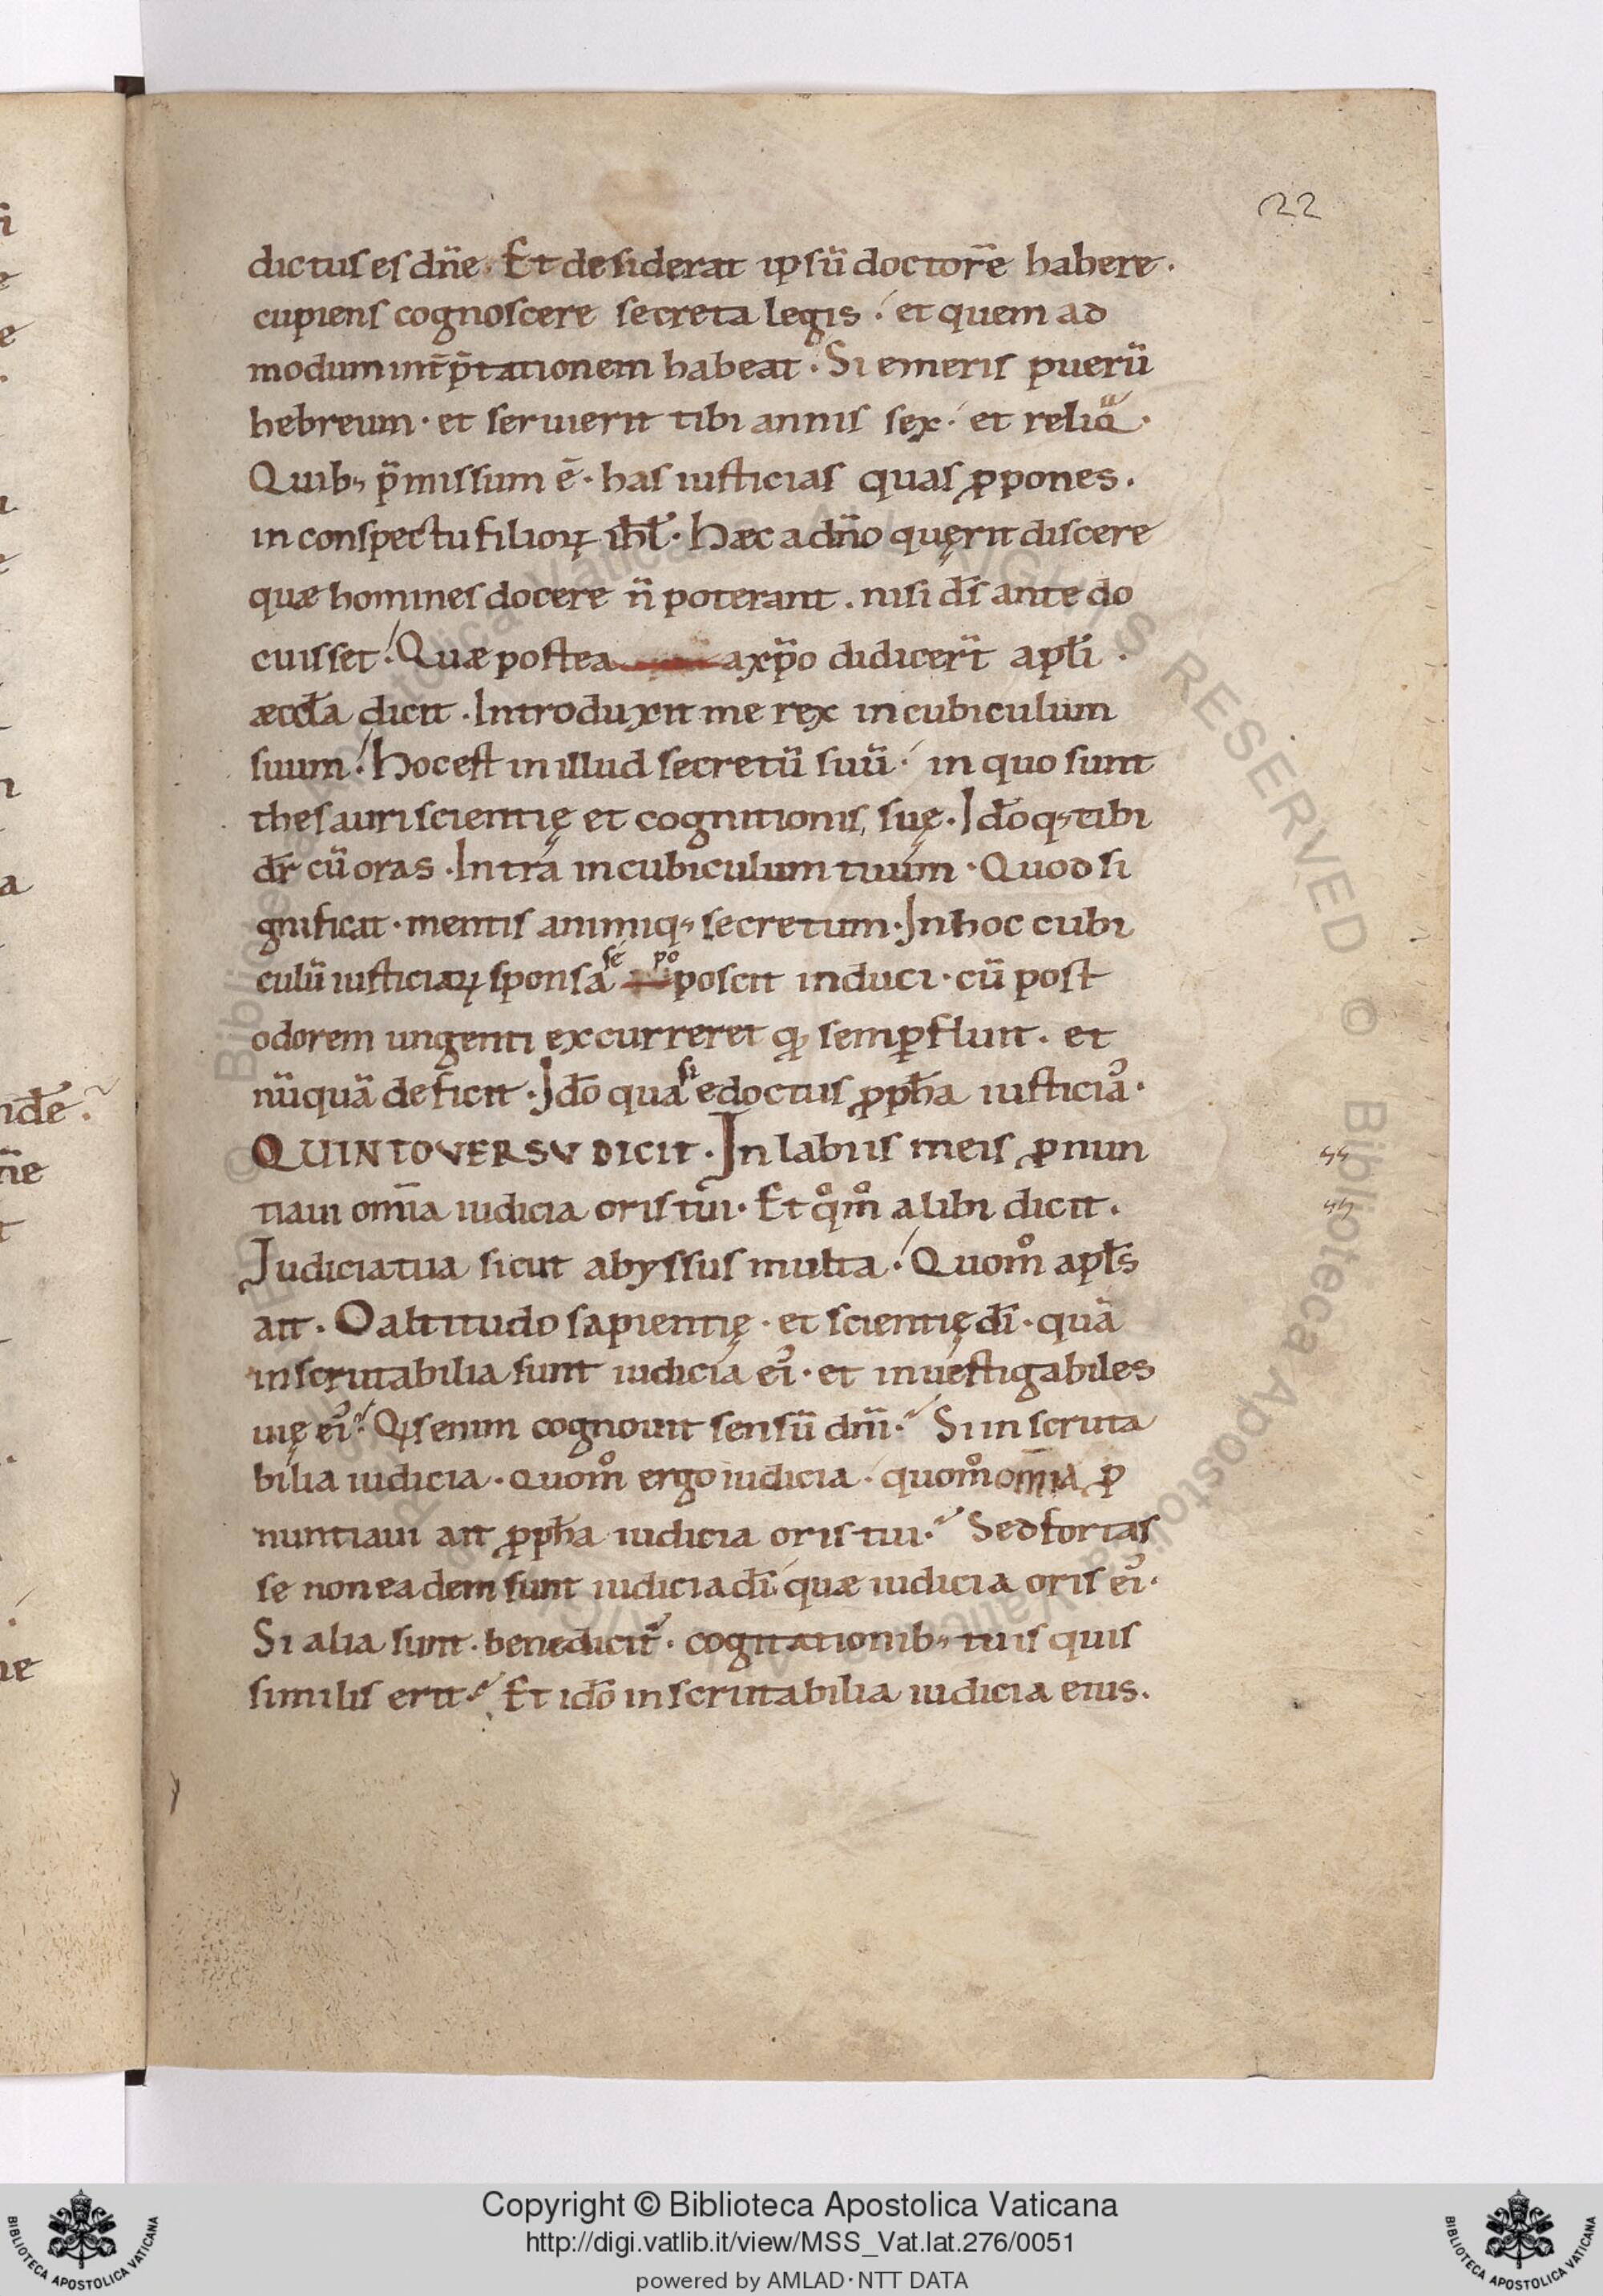 22
dictus es dn̄e. Et desiderat ipsū doctorē habere.
cupiens cognoscere secreta legis. et quem ad
modum int̄p̄tationem habeat. Si emeris puerū
hebreum. et seruierit tibi annis sex. et reliq̄a.
Quib; p̄missum ē. has iusticias quas ꝓpones.
in conspectu filioꝝ iħl. Hæc a dn̄o quęrit discere
quæ homines docere n̄ poterant. nisi d̄s ante do
cuisset. Quæ postea a xp̄o didicer̄t apl̄i.
æccl̄a dicit. Introduxit me rex in cubiculum
suum. Hoc est in illud secretū suū. in quo sunt
thesauri scientię et cognitionis suę. Id̄oq; tibi
dr̄ cū oras. Intra in cubiculum tuum. Quod si
gnificat. mentis animiq; secretum. In hoc cubi
culū iusticiaꝝ sponsa se poposcit induci. cū post
odorem ungenti excurreret qͥ semꝑ fluit. et
nūquā deficit. Id̄o quasi edoctus ꝓph̄a iusticiaꝰ.
QUINTO VERSV DICIT. In labiis meis ꝓnun
tiaui om̄ia iudicia oris tui. Et qͦmͦ alibi dicit.
Iudicia tua sicut abyssus multa. Quomͦ apl̄s
ait. O altitudo sapientię. et scientię dī. quā
inscrutabilia sunt iudicia eiꝰ. et inuestigabiles
uię eiꝰ. Qͥs enim cognouit sensū dn̄i. Si inscruta
bilia iudicia. quomͦ ergo iudicia. quomͦ omnia ꝓ
nuntiaui ait ꝓph̄a iudicia oris tui. Sed fortas
se non eadem sunt iudicia dī quæ iudicia oris eiꝰ.
Si alia sunt. bene dicit̄. cogitationib; tuis quis
similis erit. Et id̄o inscrutabilia iudicia eius.
Copyright © Biblioteca Apostolica Vaticana
http://digi.vatlib.it/view/MSS_Vat.lat.276/0051
powered by AMLAD·NTT DATA
BIBLIOTECA APOSTOLICA VATICANA
BIBLIOTECA APOSTOLICA VATICANA